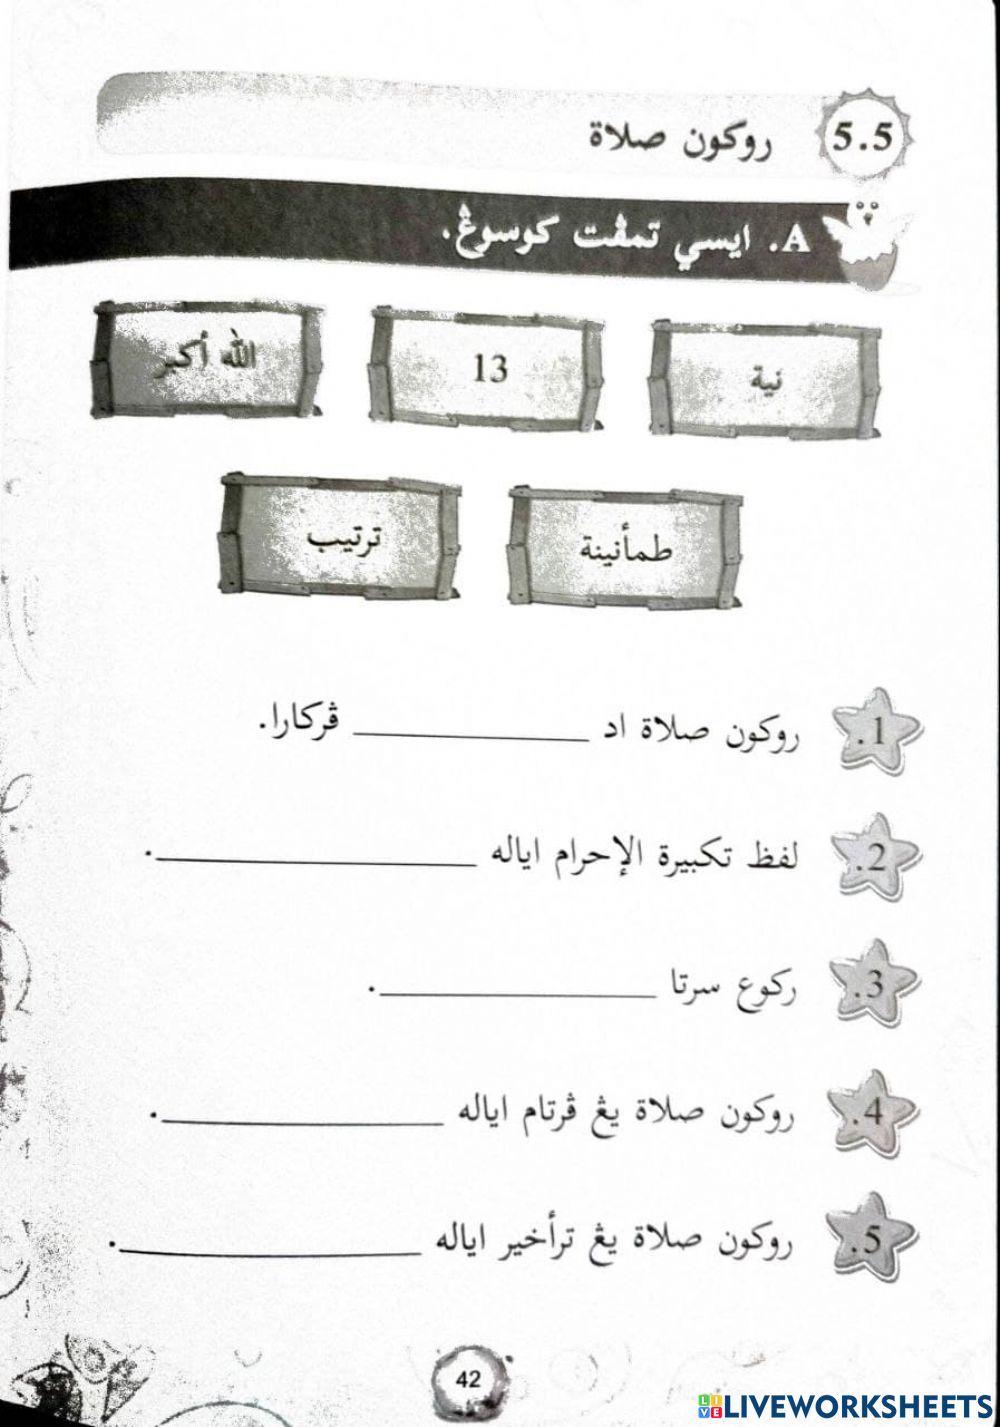 5.5 روكون صلاة
A. ايسي تمڤت كوسوڠ.
نية
13
الله أكبر
طمأنينة
ترتيب
1. روكون صلاة اد ____________ ڤركارا.
2. لفظ تكبيرة الإحرام اياله ____________.
3. ركوع سرتا ____________.
4. روكون صلاة يڠ ڤرتام اياله ____________.
5. روكون صلاة يڠ ترأخير اياله ____________.
42
LIVEWORKSHEETS